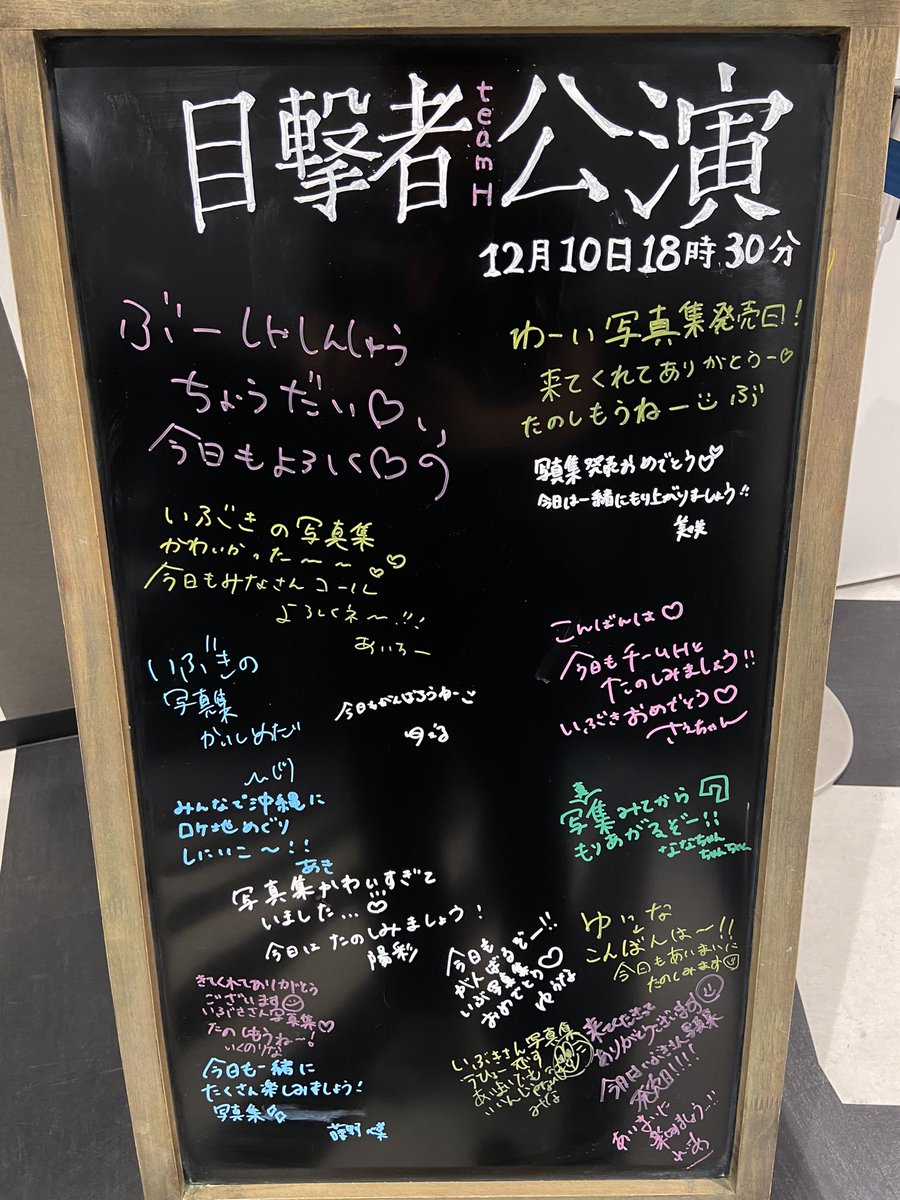 目撃者 team H 公演
12月10日18時30分
ぶーしゃしんしゅう
ちょうだい♡
今日もよろしく♡の
ゆーい写真集発売日!
来てくれてありがとうー♡
たのしもうねー ぶ
写真集発売おめでとう♡
今日は一緒にもり上がりましょう!!
美咲
いぶきの写真集
かわいかった〜〜♡♡
今日もみなさんコール
よろしくネ〜!!!
あいろー
こんばんは♡
今日もチームHと
たのしみましょう!!
いぶきおめでとう♡
さえちゃん
いぶきの
写真集
かいしめだ
今日もがんばろうねー
みんなで沖縄に
ロケ地めぐり
しにいこ〜!!
あき
写真集みてから
もりあがるぞー!!
ななちゃん
ちゃんちゃん
写真集かわいすぎて
いました...♡
今日は たのしみましょう!
陽彩
今日も
がんばるぞー!!
いぶ写真集
おめでとう♡
ゆうな
こんばんは〜!!
今日もあいまいに
たのしみます
きてくれてありがとう
ございます
いぶきさん写真集♡
たのしもうね〜!
いくのりな
今日も一緒に
たくさん楽しみましょう!
写真集
いぶきさん写真集
みな
来てくださって
ありがとうございます
今日はいぶきさん写真集
発売日!!!!